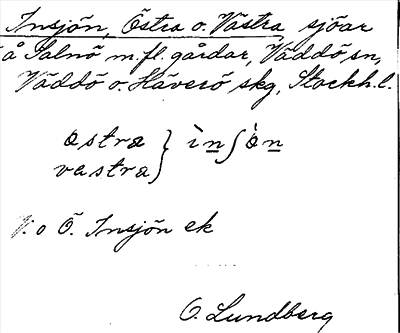 Insjön, Östra o. Västra, sjöar
å Salnö m.fl. gårdar, Väddö sn,
Väddö o. Häverö skg, Stockh. l.
östra } ìnʃò̀n
västra
V. o Ö. Insjön ek
O. Lundberg